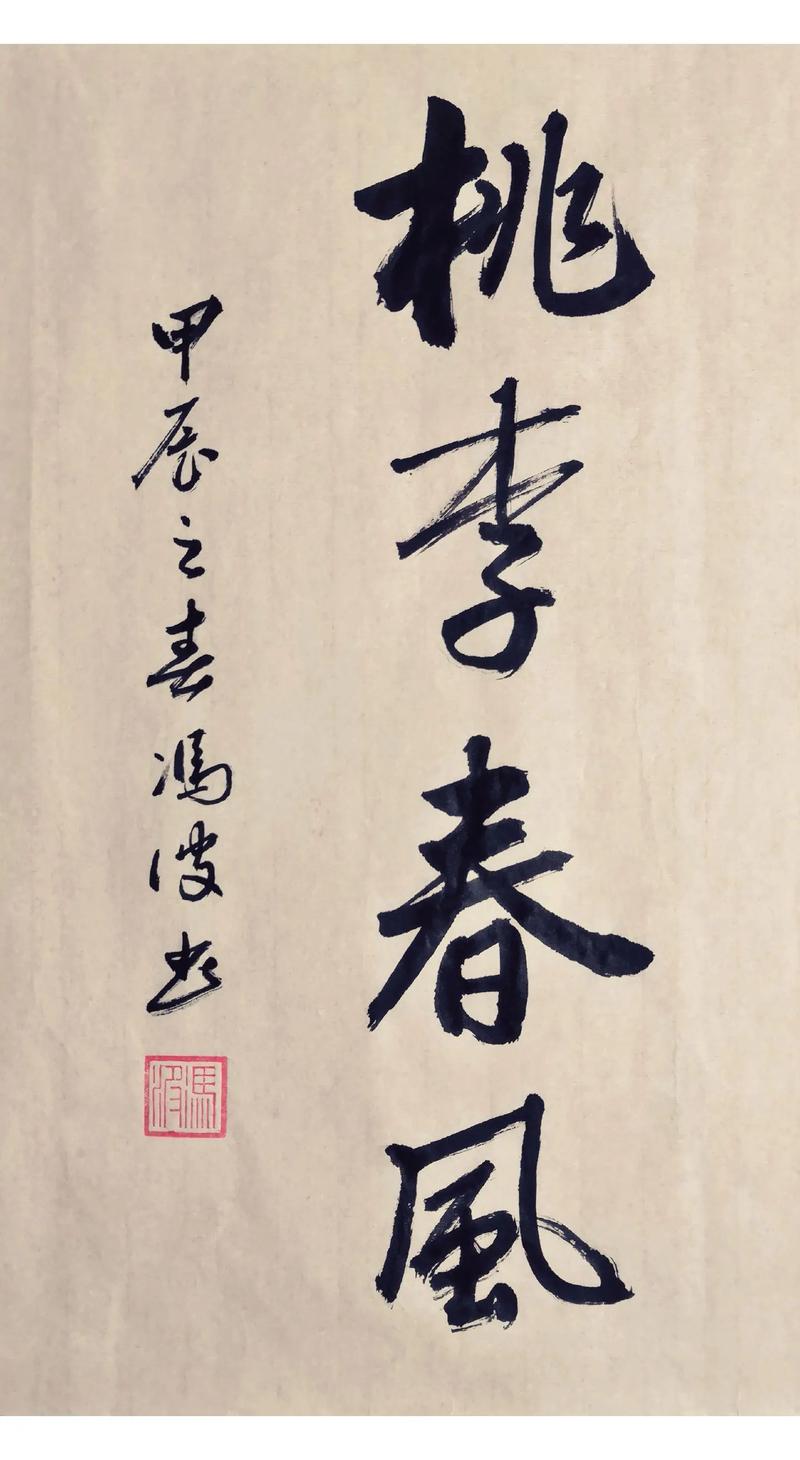 桃李春風
甲辰之春馮波书
馮波